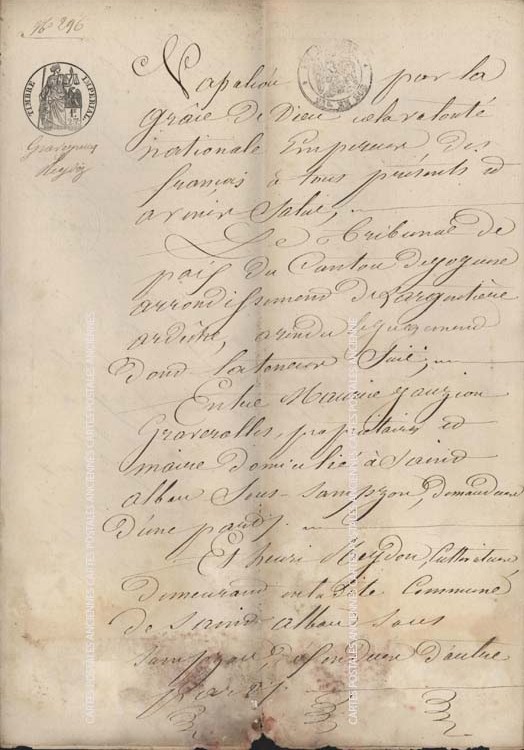 No 296
TIMBRE IMPERIAL
Napoléon par la
grâce de Dieu et la volonté
nationale Empereur des
français à tous présents et
avenir Salut, ~
Le Tribunal de
paix du Canton de joyeuse
arrondissement de Largentière
ardèche, a rendu le jugement
dont la teneur Suit; ~
Entre Maurice gauzion
Graverolles, propriétaire et
maire domicilié à Saint
alban Sous-Sampzon, demandeur
d'une part. ~
Et henri Meydon, Cultivateur
demeurant en la dite Commune
de Saint alban Sous
Sampzon, défendeur d'autre
part
CARTES POSTALES ANCIENNES CARTES POSTALES ANCIENNES
CARTES POSTALES ANCIENNES CARTES POSTALES ANCIENNES